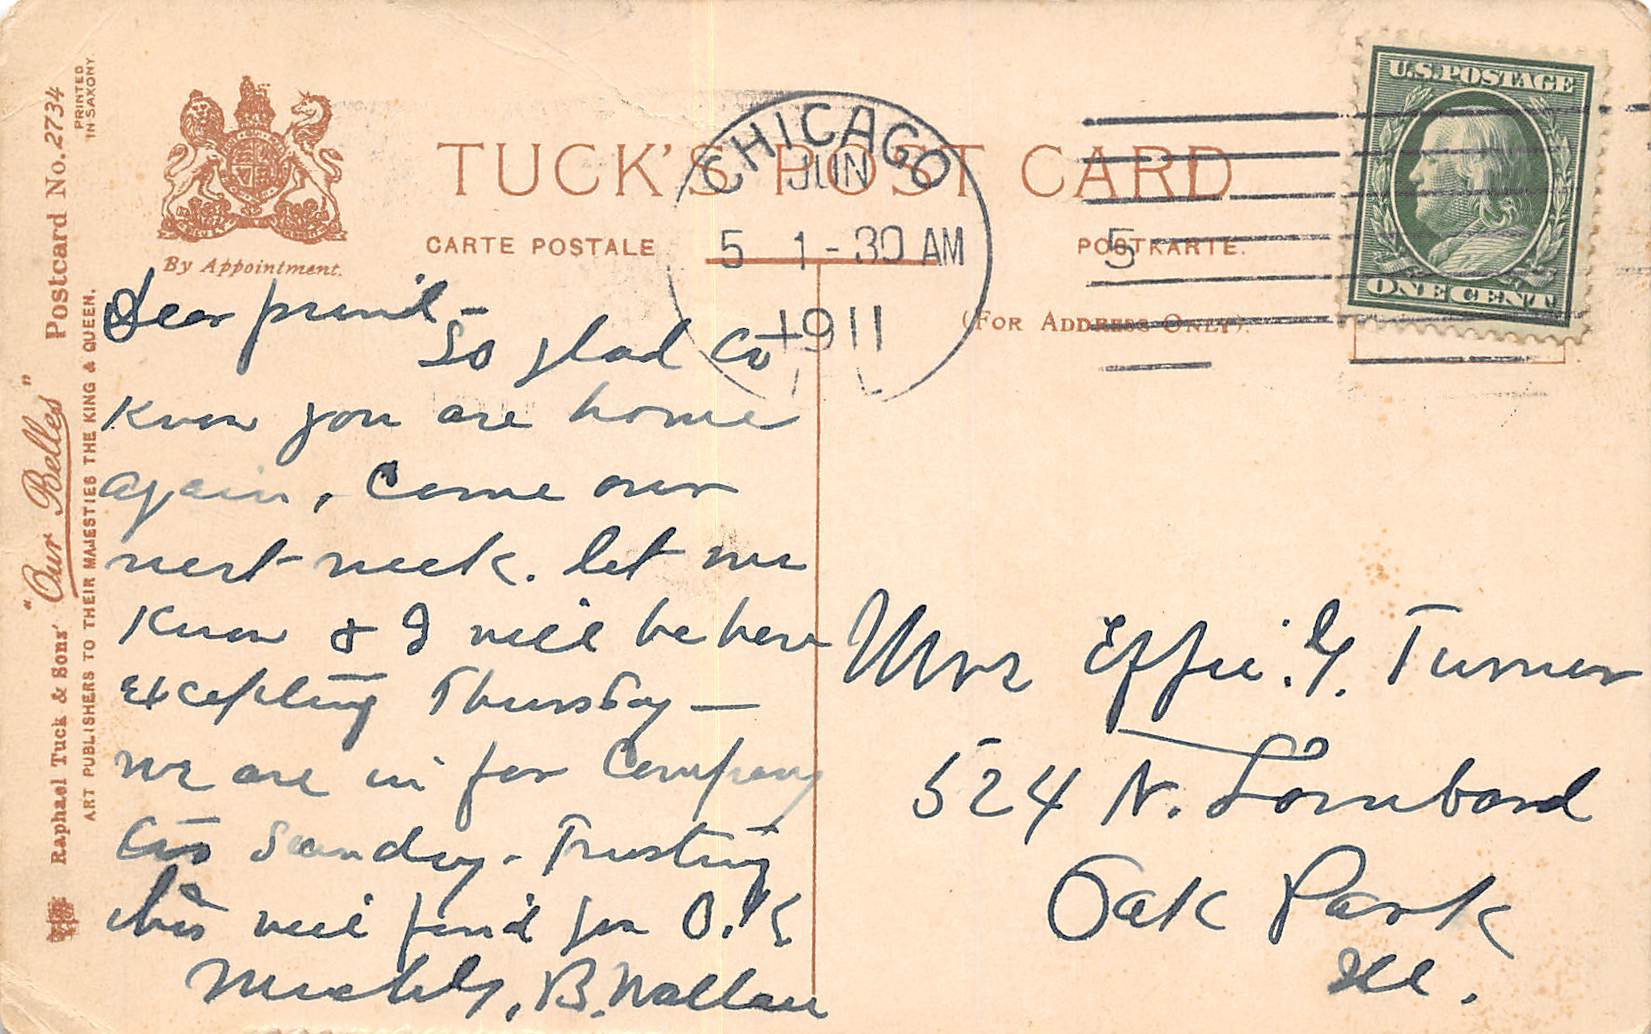 TUCK'S POST CARD
CARTE POSTALE
POSTKARTE.
(FOR ADDRESS ONLY).
By Appointment.
Raphael Tuck & Sons' "Our Belles" Postcard No. 2734
ART PUBLISHERS TO THEIR MAJESTIES THE KING & QUEEN.
PRINTED
IN SAXONY.
CHICAGO
JUN
5 1-30 AM
1911
5
U.S. POSTAGE
ONE CENT
Dear friend -
So glad to
know you are home
again, come over
next week. let me
know & I will be here
excepting Thursday -
we are in for Company
this Sunday - Trusting
this will find you O.K.
B. Wallace
Mrs Effie. G. Turner
524 N. Lombard
Oak Park
Ill.